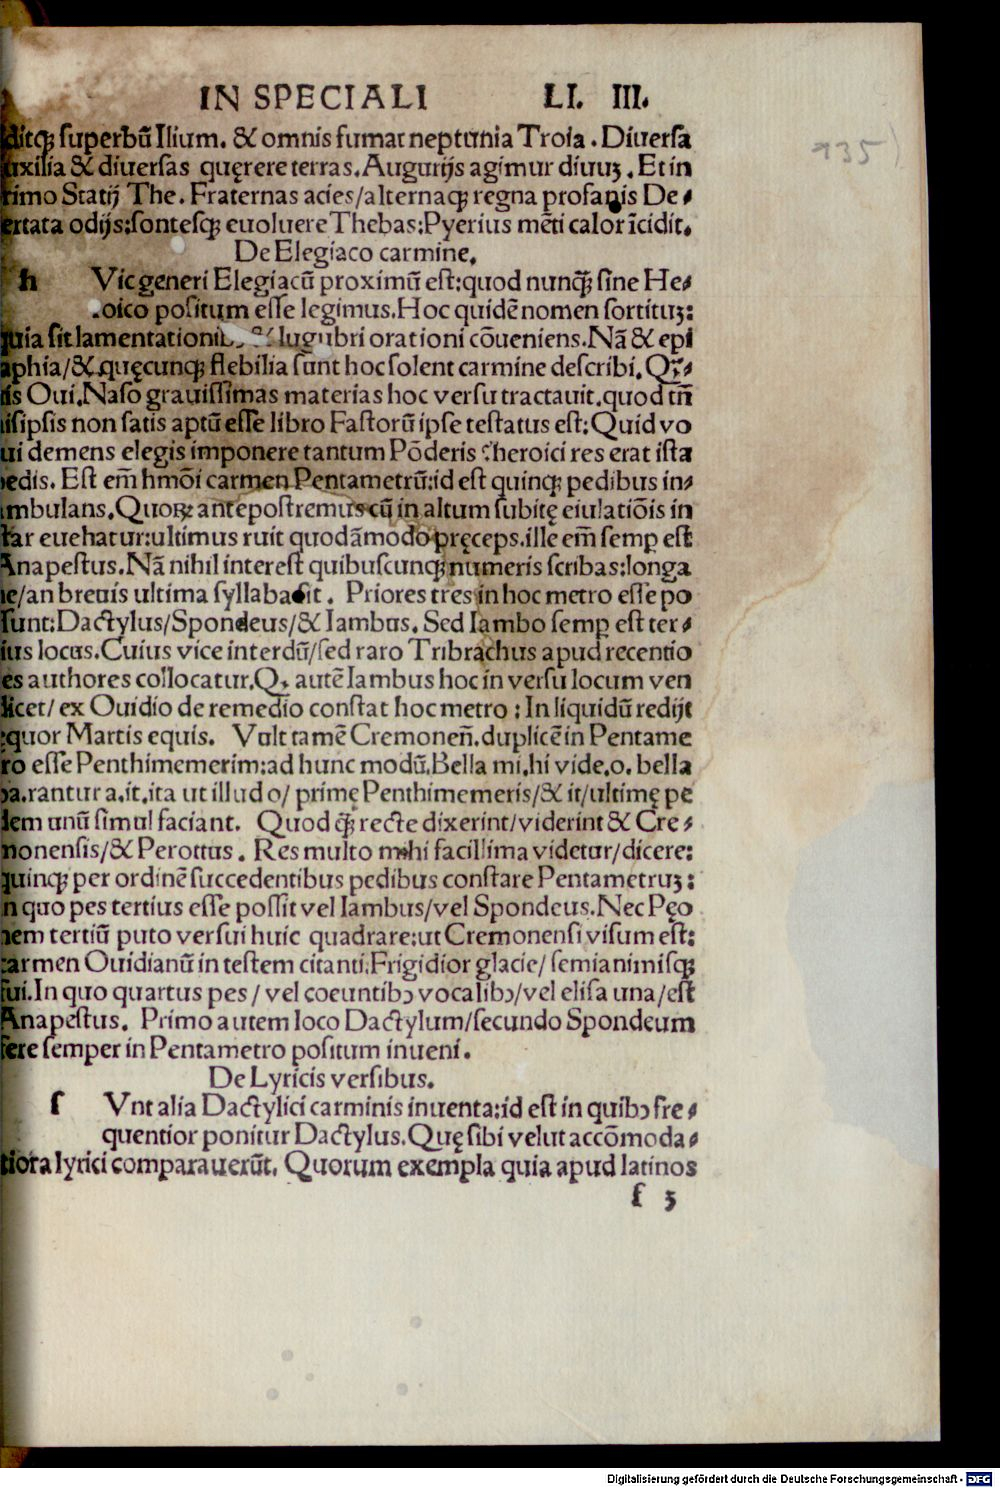 IN SPECIALI LI. III.
135)
ditqꝫ superbū Ilium. & omnis fumat neptunia Troia. Diuersa
exilia & diuersas quęrere terras. Augurijs agimur diuuꝫ. Et in
rimo Statij The. Fraternas acies/alternaqꝫ regna profanis De⸗
ertata odijs:sontesqꝫ euoluere Thebas:Pyerius mēti calor īcidit.
De Elegiaco carmine.
h Vic generi Elegiacū proximū est:quod nunqꝫ̄ sine He⸗
roico positum esse legimus. Hoc quidē nomen sortituꝫ:
quia sit lamentationibꝰ & lugubri orationi cōueniens. Nā & epi
aphia/& quęcunqꝫ flebilia sunt hoc solent carmine describi. Qꝫ⸗
is Oui. Naso grauissimas materias hoc versu tractauit. quod tn̄
iisipsis non satis aptū esse libro Fastorū ipse testatus est: Quid vo
ui demens elegis imponere tantum Pōderis? heroici res erat ista
pedis. Est em̄ hmōi carmen Pentametrū:id est quinqꝫ pedibus in⸗
ambulans. Quoꝝ antepostremus cū in altum subitę eiulatiōis in
tar euehatur:ultimus ruit quodāmodo pręceps. ille em̄ semꝑ est
Anapestus. Nā nihil interest quibuscunqꝫ numeris scribas:longa
ne/an breuis ultima syllaba sit. Priores tres in hoc metro esse po
sunt:Dactylus/Spondeus/& Iambus. Sed Iambo semꝑ est ter⸗
ius locus. Cuius vice interdū/sed raro Tribrachus apud recentio
es authores collocatur. Qꝫ autē Iambus hoc in versu locum ven
dicet/ ex Ouidio de remedio constat hoc metro: In liquidū redijt
equor Martis equis. Vult tamē Cremonen̄. duplicē in Pentame
ro esse Penthimemerim:ad hunc modū. Bella mi.hi vide.o. bella
pa.rantur a.it. ita ut illud o/ primę Penthimemeris/& it/ultimę pe
dem unū simul faciant. Quod qꝫ̄ recte dixerint/viderint & Cre⸗
monensis/& Perottus. Res multo mihi facillima videtur/dicere:
quinqꝫ per ordinē succedentibus pedibus constare Pentametruꝫ:
in quo pes tertius esse possit vel Iambus/vel Spondeus. Nec Pęo
nem tertiū puto versui huic quadrare:ut Cremonensi visum est:
carmen Ouidianū in testem citanti. Frigidior glacie/ semianimisqꝫ
fui. In quo quartus pes / vel coeuntibꝰ vocalibꝰ/vel elisa una/est
Anapestus. Primo autem loco Dactylum/secundo Spondeum
fere semper in Pentametro positum inueni.
De Lyricis versibus.
ſ Vnt alia Dactylici carminis inuenta:id est in quibꝰ fre⸗
quentior ponitur Dactylus. Quę sibi velut accōmoda⸗
tiora lyrici comparauerūt. Quorum exempla quia apud latinos
ſ 3
Digitalisierung gefördert durch die Deutsche Forschungsgemeinschaft - DFG